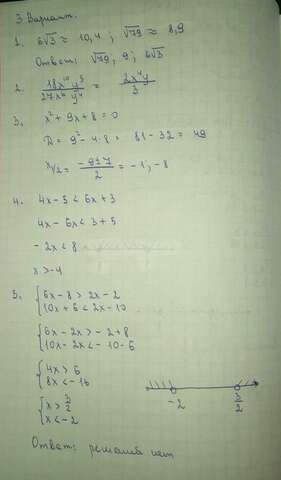 3 Вариант.
1. 6√3 ≈ 10,4 ; √79 ≈ 8,9
Ответ: √79, 9; 6√3
2. 18x¹⁰y⁵ / 27x⁶y⁴ = 2x⁴y / 3
3. x² + 9x + 8 = 0
D = 9² - 4·8 = 81 - 32 = 49
x₁/₂ = -9±7 / 2 = -1; -8
4. 4x - 5 < 6x + 3
4x - 6x < 3 + 5
- 2x < 8
x > -4
5. { 6x - 8 > 2x - 2
10x + 6 < 2x - 10
{ 6x - 2x > -2 + 8
10x - 2x < -10 - 6
{ 4x > 6
8x < -16
{ x > 3/2
x < -2
-2 3/2
Ответ: решений нет